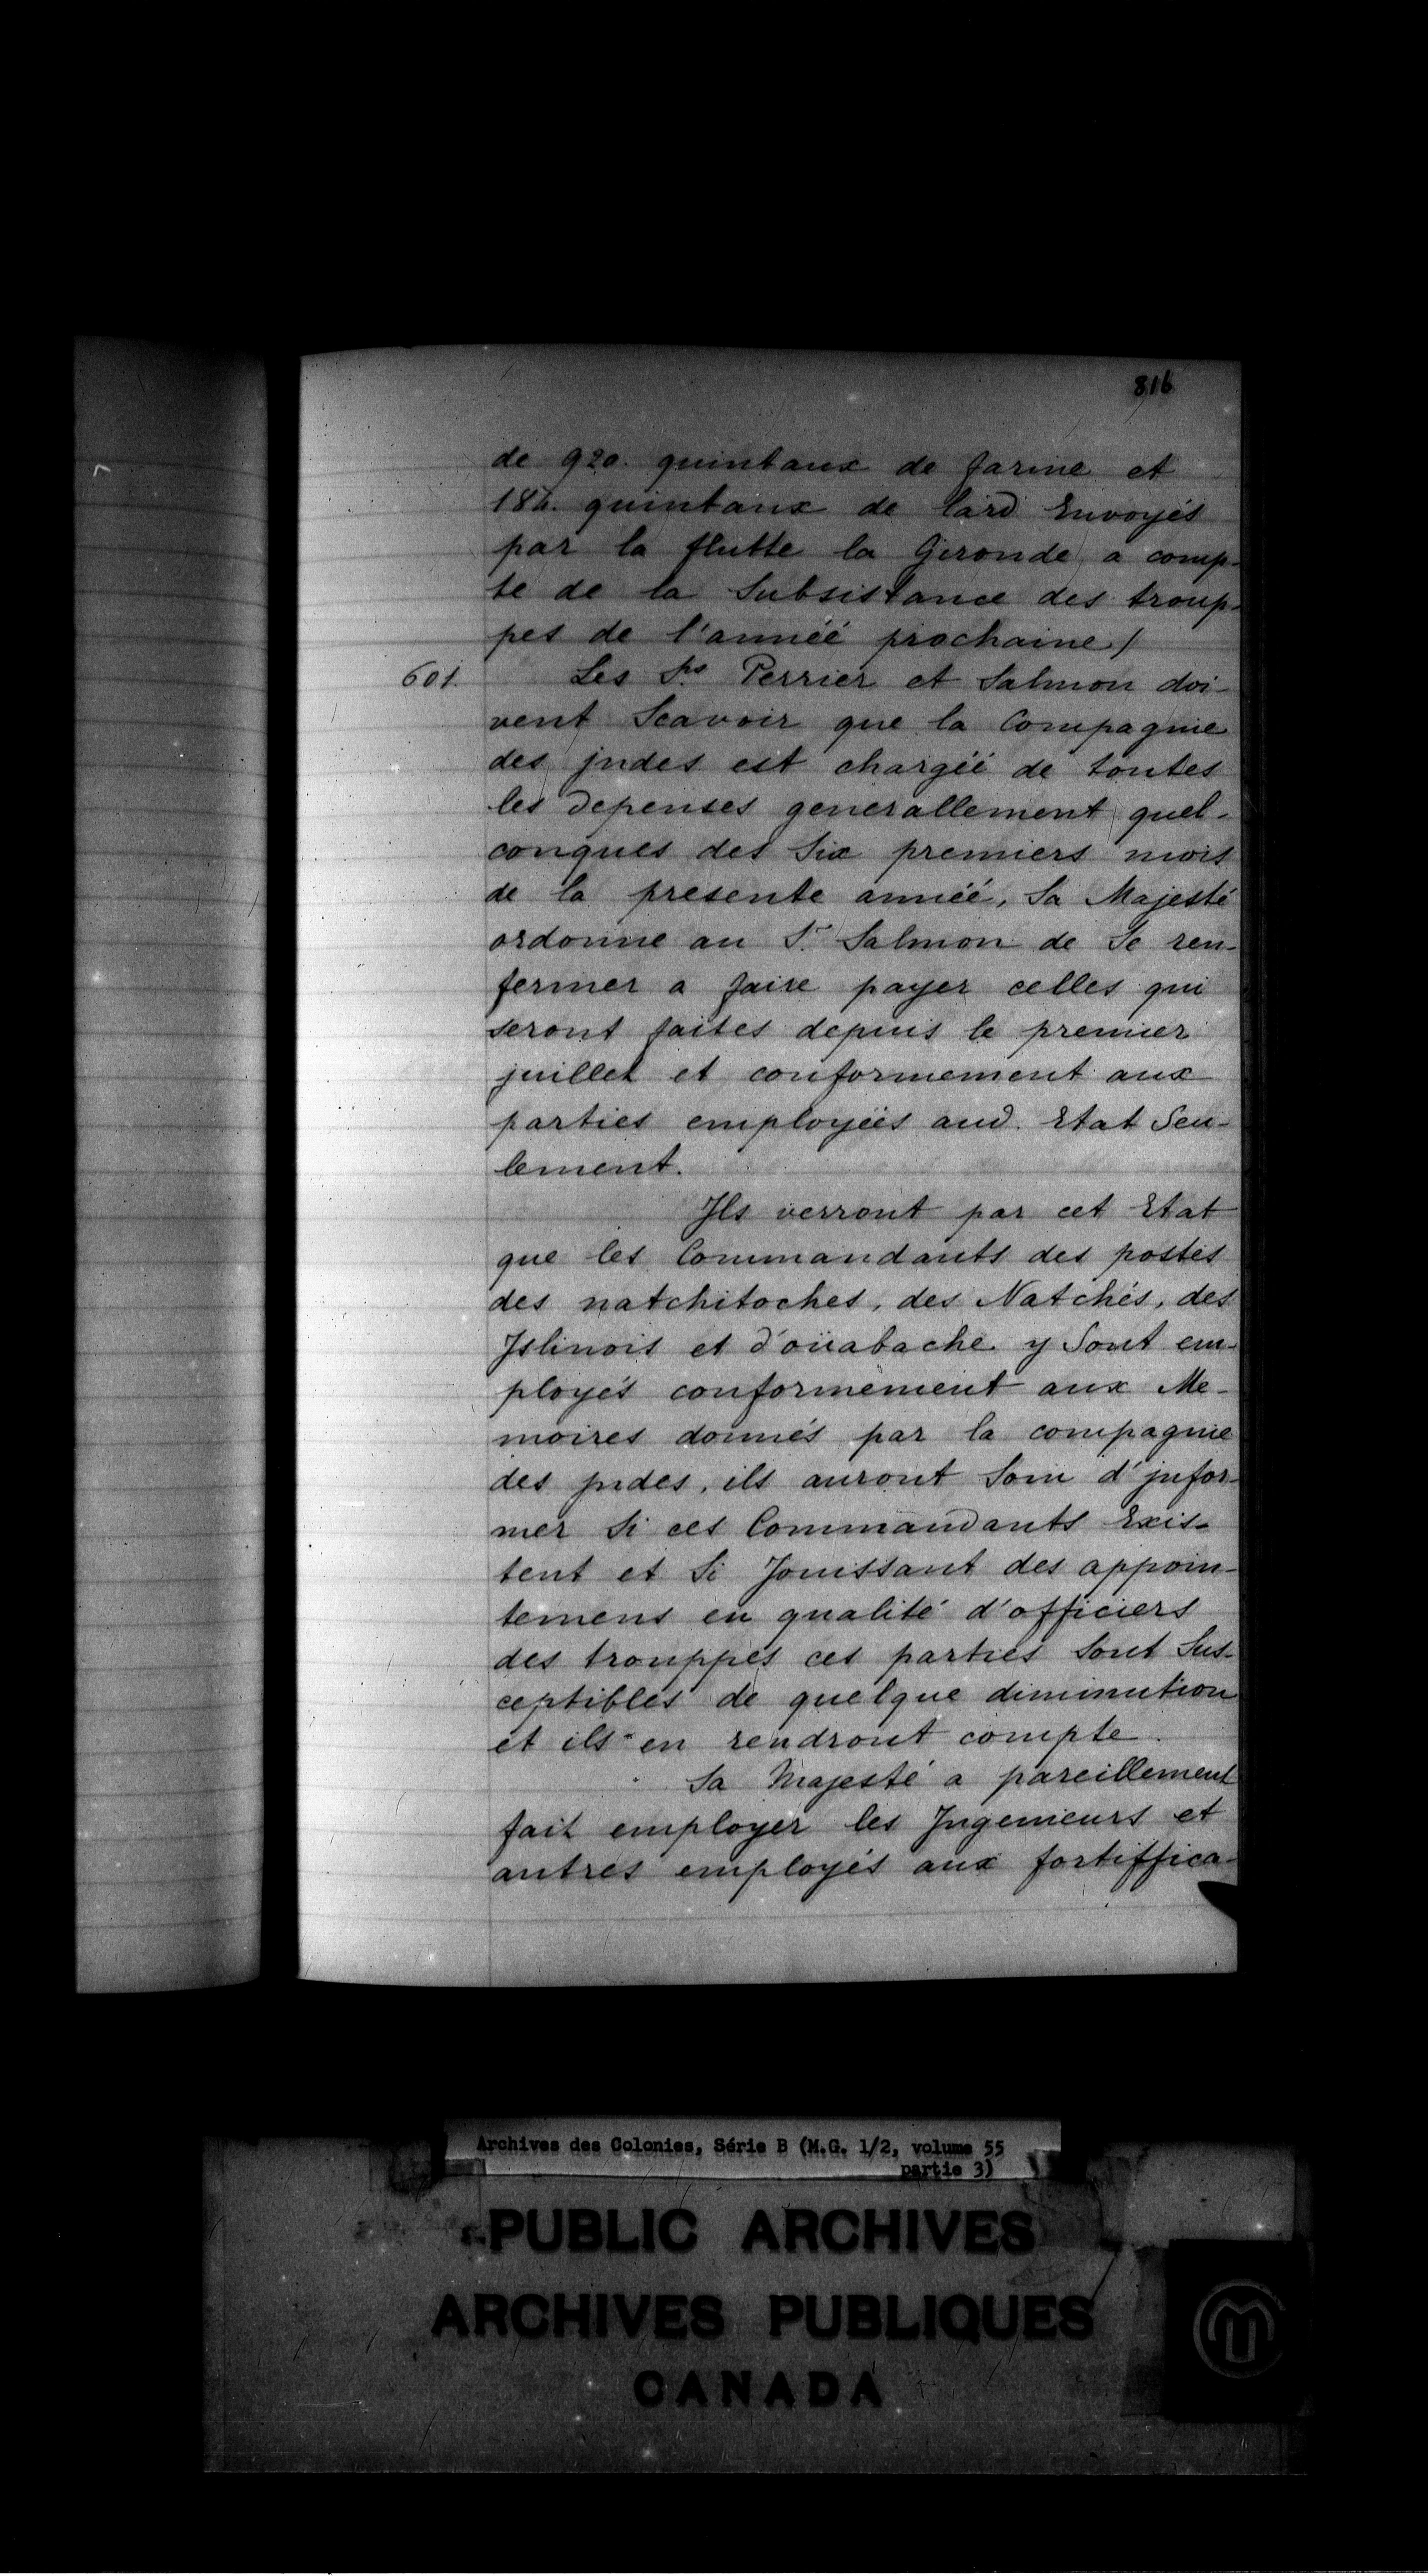 816
de 920. quintaux de farine et
184. quintaux de lard Envoyés
par la flutte la Gironde a comp-
te de la Subsistance des troup-
pes de l'annéé prochaine /
601. Les Srs Perrier et Salmon doi-
vent Scavoir que la Compagnie
des jndes est chargéé de toutes
les depenses generallement quel-
conques des Six premiers mois
de la presente annéé, Sa Majesté
ordonne au Sr Salmon de Se ren-
fermer a faire payer celles qui
seront faites depuis le premier
juillet et conformement aux
parties employéés aud. Etat Seu-
lement.
Jls verront par cet Etat
que les Commandants des postes
des natchitoches, des Natchés, des
Jslinois et d'oüabache y Sont em-
ployés conformement aux Me-
moires donnés par la compagnie
des jndes, ils auront Soin d'jnfor-
mer Si ces Commandants Exis-
tent et Si Jouissant des appoin-
temens en qualité d'officiers
des trouppes ces parties Sont Sus-
ceptibles de quelque diminution
et ils en rendront compte.
Sa Majesté a pareillement
fait employer les Jngenieurs et
autres employés aux fortiffica-
Archives des Colonies, Série B (M.G. 1/2, volume 55
partie 3)
PUBLIC ARCHIVES
ARCHIVES PUBLIQUES
CANADA